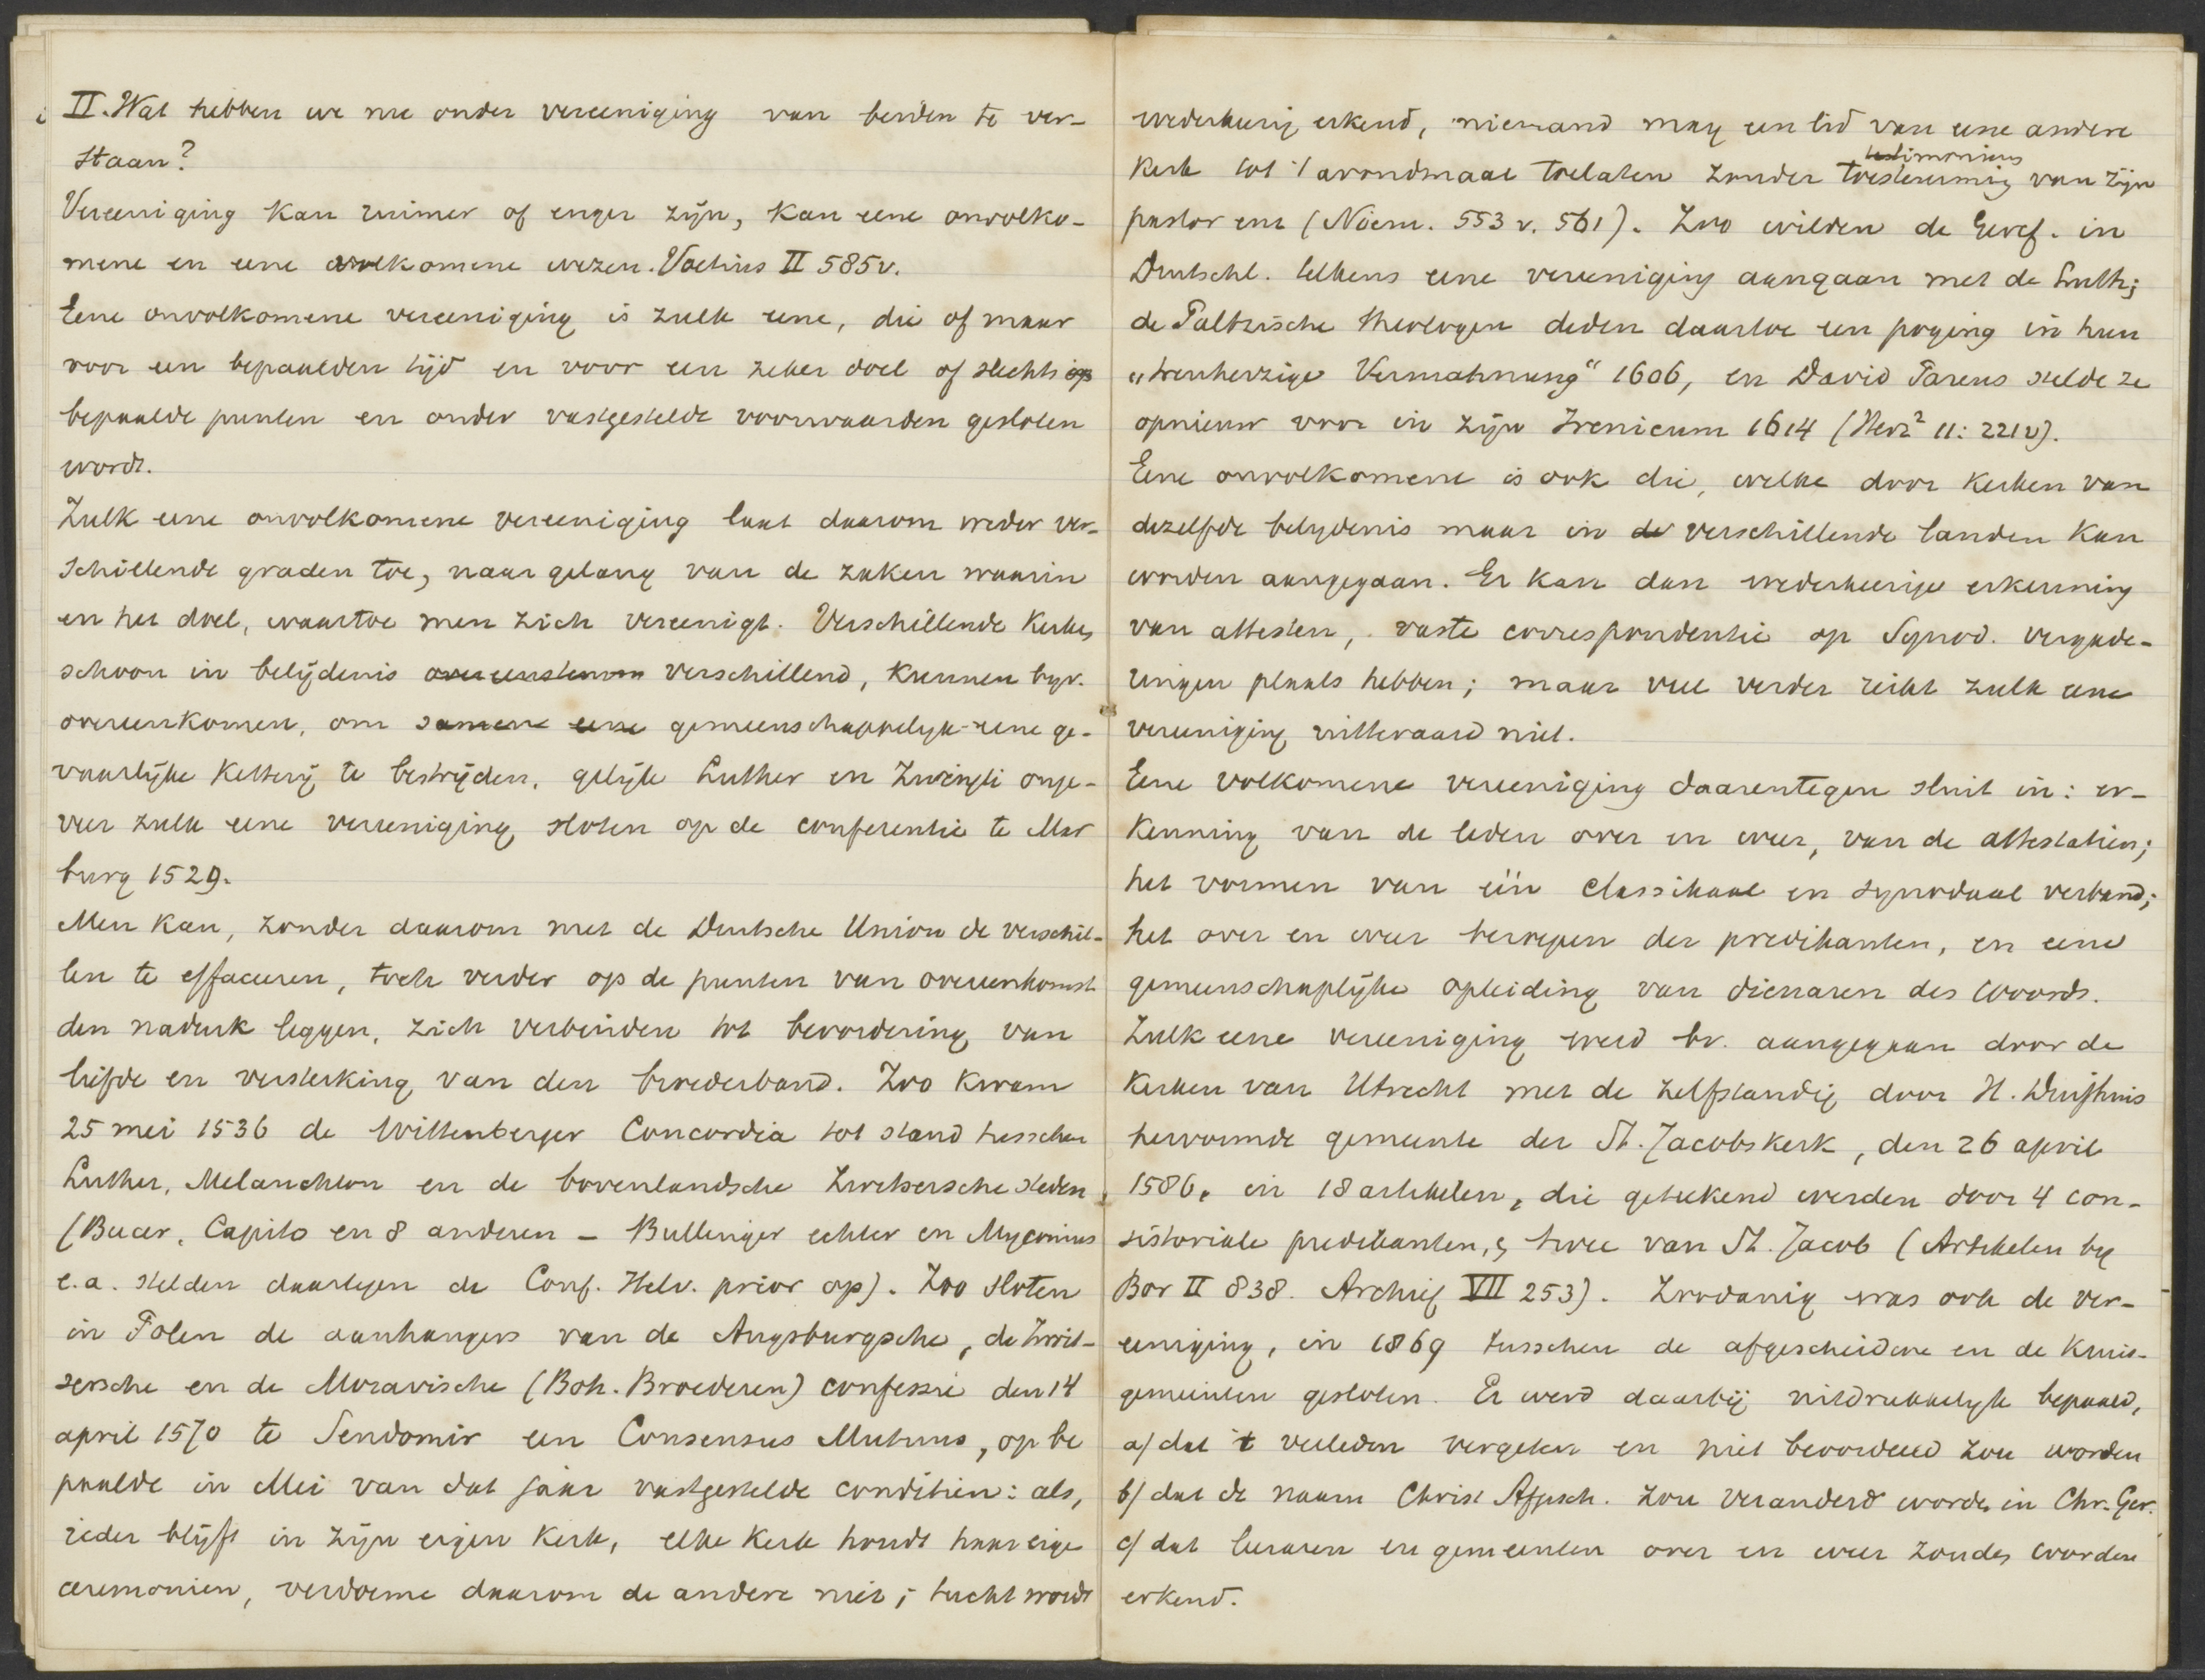 II. Wat hebben we nu onder vereeniging van beiden te ver-
staan?
Vereeniging kan ruimer of enger zijn, kan eene onvolko-
mene en eene volkomene wezen. Voetius II 585v.
Eene onvolkomene vereeniging is zulk eene, die of maar
voor een bepaalden tijd en voor een zeker doel of slechts op
bepaalde punten en onder vastgestelde voorwaarden gesloten
wordt.
Zulk eene onvolkomene vereeniging laat daarom weder ver-
schillende graden toe, naar gelang van de zaken waarin
en het doel, waartoe men zich vereenigt. Verschillende kerken,
schoon in belijdenis overeenstemm verschillend, kunnen byv.
overeenkomen, om samen eene gemeenschappelyk eene ge-
vaarlijke ketterij te bestrijden, gelijk Luther en Zwingli onge-
veer zulk eene vereeniging sloten op de conferentie te Mar
burg 1529.
Men kan, zonder daarom met de Duitsche Union de verschil-
len te effaceeren, toch verder op de punten van overeenkomst
den nadruk leggen, zich verbinden tot bevordering van
liefde en versterking van den broederband. Zoo kwam
25 mei 1536 de Wittenberger Concordia tot stand tusschen
Luther, Melanchton en de bovenlandsche Zwitsersche steden
(Bucer, Capito en 8 anderen - Bullinger echter en Myconius
e.a. stelden daartegen de Conf. Helv. prior op). Zoo sloten
in Polen de aanhangers van de Augsburgsche, de Zwit-
sersche en de Moravische (Boh. Broederen) confessie den 14
april 1570 te Sendomir een Consensus Mutuus, op be
paalde in Mei van dat jaar vastgestelde conditien: als,
ieder blijft in zijn eigen kerk, elke kerk houdt haar eige
ceremonien, verdoeme daarom de andere niet; tucht wordt
wederkeerig erkend, niemand mag een lid van eene andere
kerk tot 't avondmaal toelaten zonder toestemming testimonium van zijn
pastor enz (Niem. 553 v. 561). Zoo wilden de Geref. in
Duitschl. telkens eene vereeniging aangaan met de Luth;
de Paltzische theologen deden daartoe een poging in hun
"treuherzige Vermahnung" 1606, en David Pareus stelde ze
opnieuw voor in zijn Irenicum 1614 (Herz² 11: 221v).
Eene onvolkomene is ook die, welke door kerken van
dezelfde belydenis maar in de verschillende landen kan
worden aangegaan. Er kan dan wederkeerige erkenning
van attesten, vaste correspondentie op Synod. vergade-
ringen plaats hebben; maar veel verder reikt zulk eene
vereeniging uitteraard niet.
Eene volkomene vereeniging daarentegen sluit in: er-
kenning van de leden over en weer, van de attestatien;
het vormen van één classikaal en synodaal verband;
het over en weer beroepen der predikanten, en eene
gemeenschaplijke opleiding van dienaren des Woords.
Zulk eene vereeniging werd bv. aangegaan door de
kerken van Utrecht met de zelfstandig door H. Duifhuis
hervormde gemeente der St. Jacobskerk, den 26 april
1586, in 18 artikelen, die geteekend werden door 4 con-
sistoriale predikanten, & twee van St. Jacob (Artikelen by
Bor II 838. Archief VII 253). Zoodanig was ook de ver-
eeniging, in 1869 tusschen de afgescheidene en de Kruis-
gemeenten gesloten. Er werd daarbij uitdrukkelyk bepaald,
a/ dat 't verleden vergeten en niet beoordeeld zou worden
b/ dat de naam Christ Afgesch. zou veranderd worden in Chr. Ger.
c/ dat leeraren en gemeenten over en weer zouden worden
erkend.